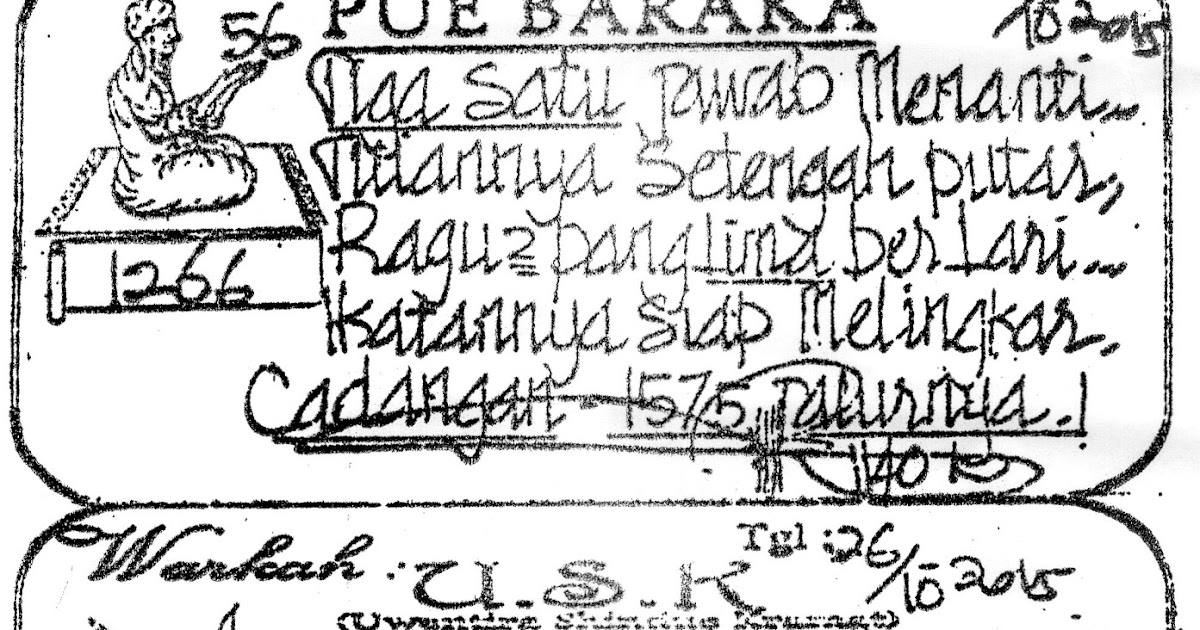 PUE BARAKA
56
10 2015
Tiga Satu jawab Menanti...
Setengah putar,
Ragu2 panglima berlari...
1266
Ikatannya siap Melingkar.
Cadangan - 1575 jalurnya.!
Warkah : U.S.K
Tgl : 26/10 2015